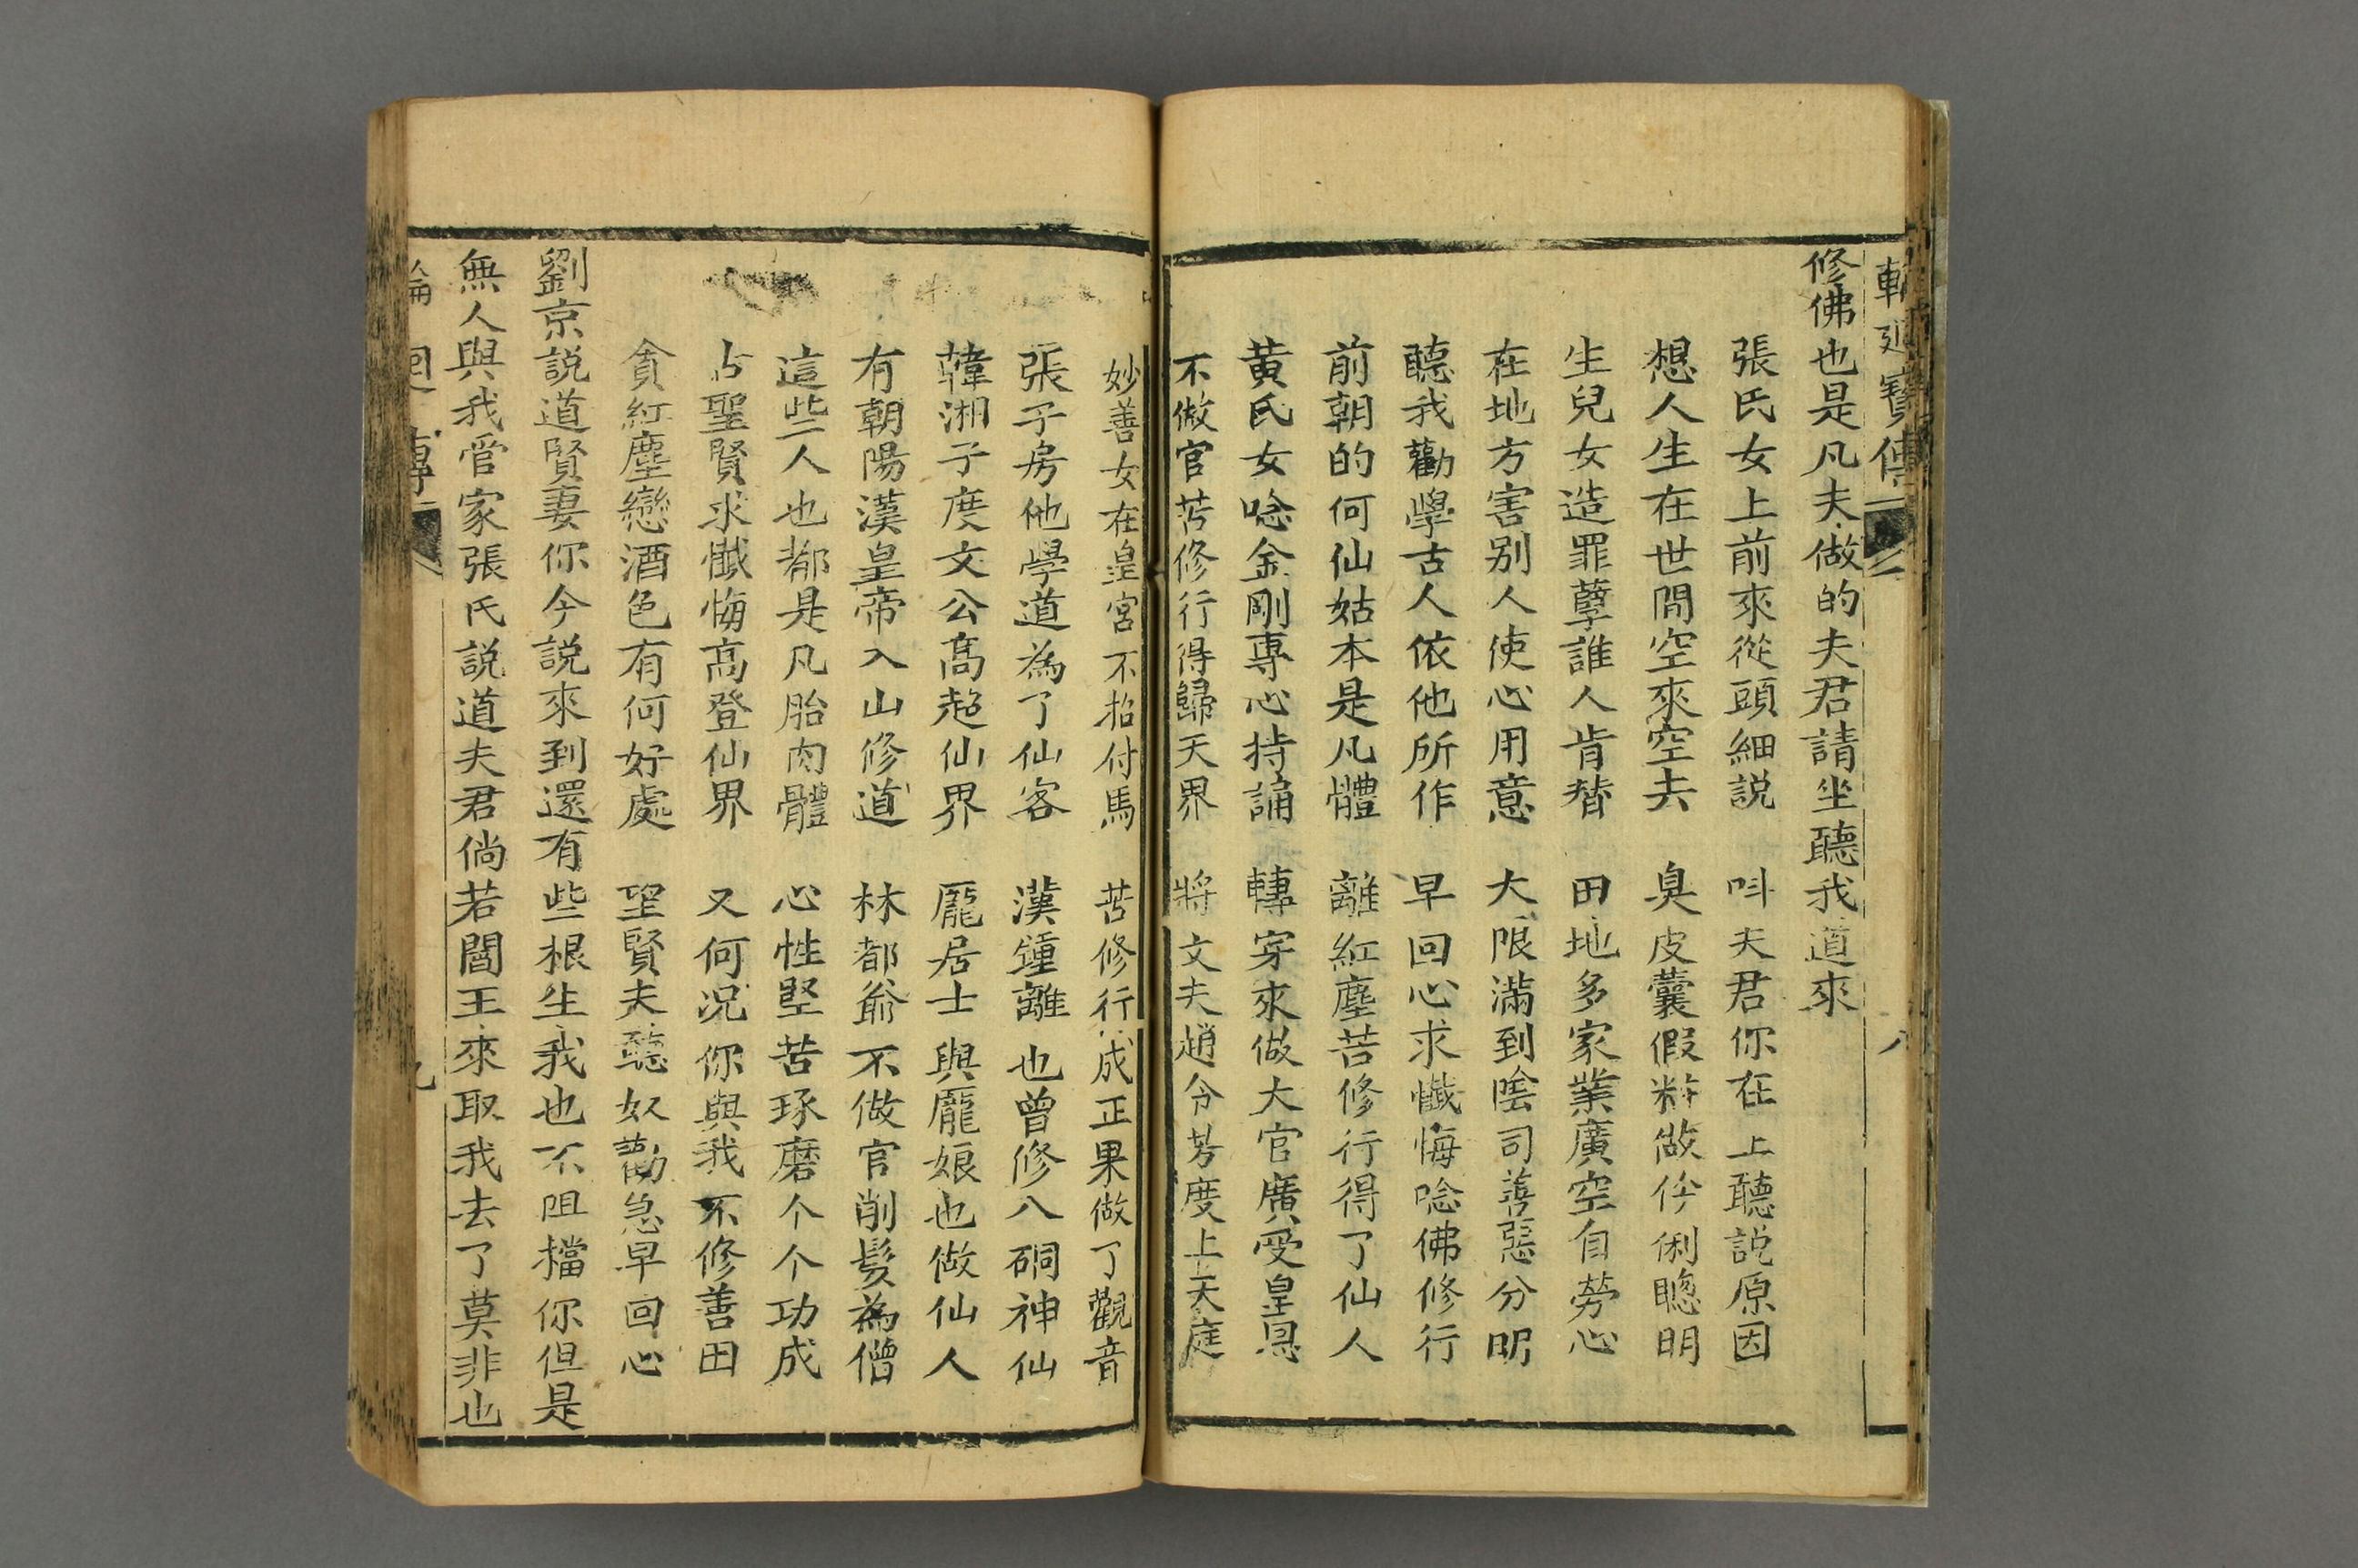 輪廻寶傳
八
修佛也是凡夫做的夫君請坐聽我道來
張氏女上前來從頭細説　呌夫君你在上聽説原因
想人生在世間空來空去　臭皮囊假粧做伶俐聰明
生兒女造罪孽誰人肯替　田地多家業廣空自勞心
在地方害别人使心用意　大限滿到陰司善惡分明
聽我勸學古人依他所作　早回心求懺悔唸佛修行
前朝的何仙姑本是凡體　離紅塵苦修行得了仙人
黄氏女唸金剛專心持誦　轉穿來做大官廣受皇恩
不做官苦修行得歸天界　將文夫趙令芳度上天庭
妙善女在皇宮不招付馬　苦修行成正果做了觀音
張子房他學道為了仙客　漢鍾離也曾修八硐神仙
韓湘子度文公髙超仙界　龎居士與龎娘也做仙人
有朝陽漢皇帝入山修道　林都爺不做官削髮為僧
這些人也都是凡胎肉體　心性堅苦琢磨个个功成
古聖賢求懺悔髙登仙界　又何况你與我不修善田
貪紅塵戀酒色有何好處　望賢夫聽奴勸急早回心
劉京説道賢妻你今説來到還有些根生我也不阻擋你但是
無人與我管家張氏説道夫君倘若閻王來取我去了莫非也
輪廻傳
九